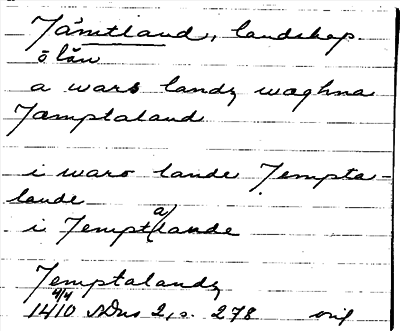 Jämtland, landskap
ö län
a wars landz wæghna
Jæmptaland
i waro lande Jempta-
lande
i Jempt(a)lande
Jemptalandz
4/4
1410 SDns 2, s. 278 orig